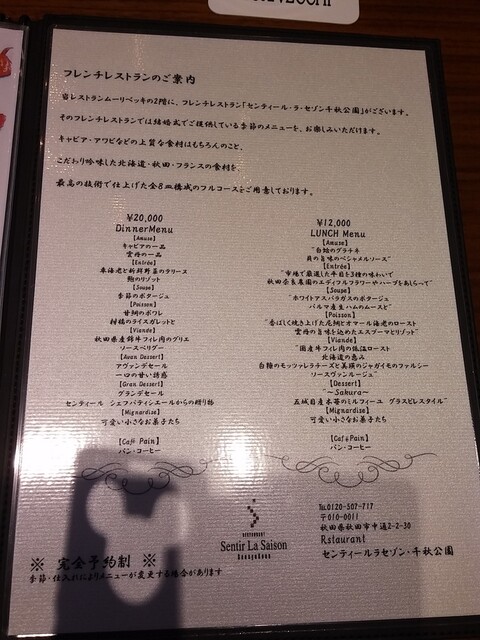 フレンチレストランのご案内
当レストランムーリベッキの2階に、フレンチレストラン「センティール・ラ・セゾン千秋公園」がございます。
そのフレンチレストランでは結婚式でご提供している季節のメニューを、お楽しみいただけます。
キャビア・アワビなどの上質な食材はもちろんのこと、
こだわり吟味した北海道・秋田・フランスの食材を、
最高の技術で仕上げた全8皿構成のフルコースをご用意しております。
¥20,000
DinnerMenu
【Amuse】
キャビアの一品
雲丹の一品
【Entrée】
車海老と新鮮野菜のテリーヌ
鮑のリゾット
【Soupe】
季節のポタージュ
【Poisson】
甘鯛のポワレ
柑橘のライスガレットと
【Viande】
秋田県産錦牛フィレ肉のグリエ
ソースペリグー
【Avan Dessert】
アヴァンデセール
一口の甘い誘惑
【Gran Dessert】
グランデセール
センティール シェフパティシエールからの贈り物
【Mignardise】
可愛い小さなお菓子たち
【Café Pain】
パン・コーヒー
¥12,000
LUNCH Menu
【Amuse】
"白蛤のグラチネ
貝の旨味のベシャメルソース"
【Entrée】
"市場で厳選した平目を3種の味わいで
秋田奈良農園のエディブルフラワーやハーブをあしらって"
【Soupe】
"ホワイトアスパラガスのポタージュ
パルマ産生ハムのムースと"
【Poisson】
"香ばしく焼き上げた尾鯛とオマール海老のロースト
雲丹の旨味を込めたエスプーマとリゾット"
【Viande】
"国産牛フィレ肉の低温ロースト
北海道の恵み
白糠のモッツァレラチーズと美瑛のジャガイモのファルシー
ソースヴァンルージュ"
【Dessert】
"～Sakura～
五城目産木苺のミルフィーユ グラスピレスタイル"
【Mignardise】
可愛い小さなお菓子たち
【Café Pain】
パン・コーヒー
RESTAURANT
Sentir La Saison
Tel.0120-507-717
〒010-0011
秋田県秋田市中通2-2-30
Rstaurant
センティールラセゾン・千秋公園
※ 完全予約制 ※
季節・仕入れによりメニューが変更する場合があります